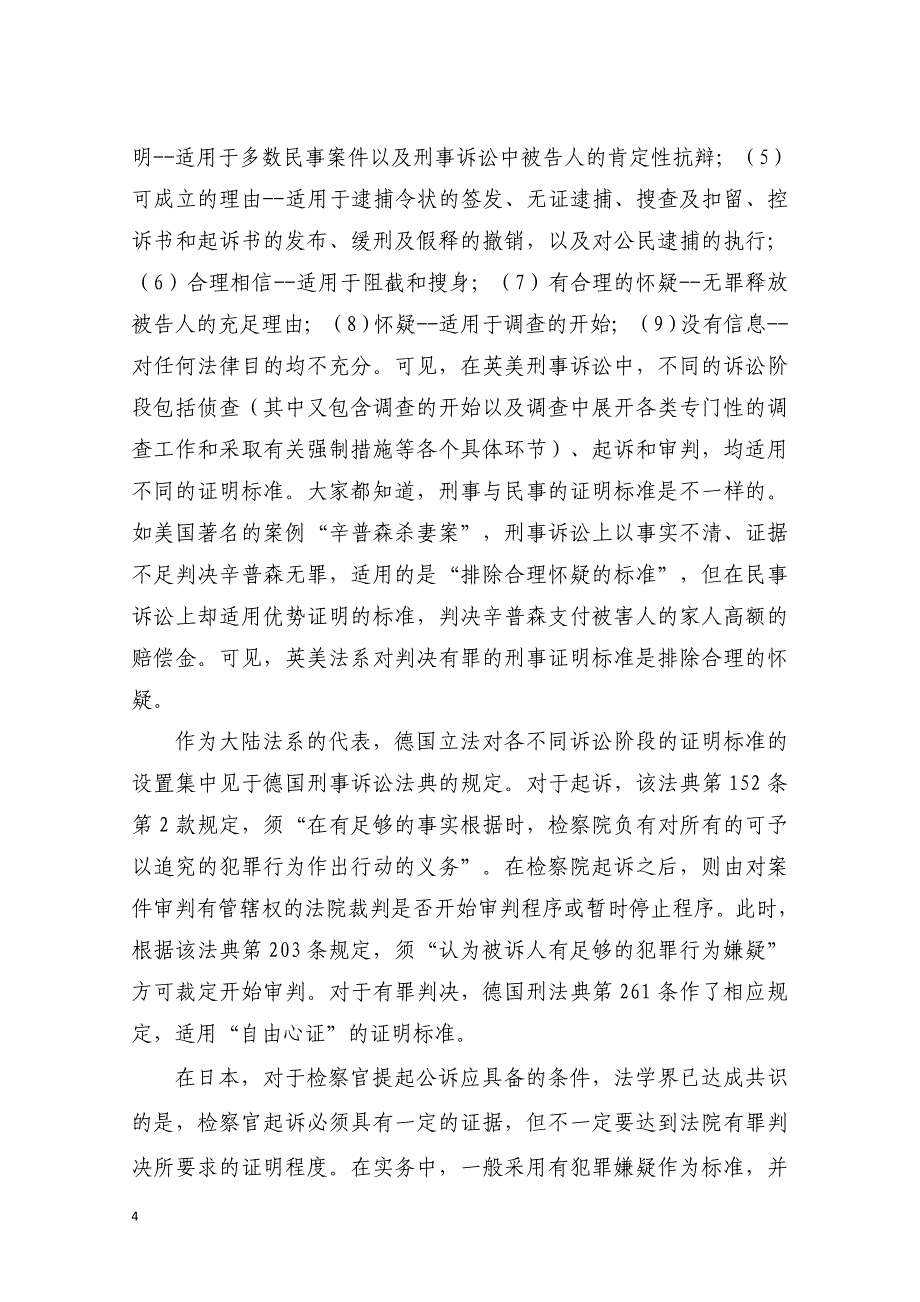 明--适用于多数民事案件以及刑事诉讼中被告人的肯定性抗辩；（5）
可成立的理由--适用于逮捕令状的签发、无证逮捕、搜查及扣留、控
诉书和起诉书的发布、缓刑及假释的撤销，以及对公民逮捕的执行；
（6）合理相信--适用于阻截和搜身；（7）有合理的怀疑--无罪释放
被告人的充足理由；（8）怀疑--适用于调查的开始；（9）没有信息--
对任何法律目的均不充分。可见，在英美刑事诉讼中，不同的诉讼阶
段包括侦查（其中又包含调查的开始以及调查中展开各类专门性的调
查工作和采取有关强制措施等各个具体环节）、起诉和审判，均适用
不同的证明标准。大家都知道，刑事与民事的证明标准是不一样的。
如美国著名的案例“辛普森杀妻案”，刑事诉讼上以事实不清、证据
不足判决辛普森无罪，适用的是“排除合理怀疑的标准”，但在民事
诉讼上却适用优势证明的标准，判决辛普森支付被害人的家人高额的
赔偿金。可见，英美法系对判决有罪的刑事证明标准是排除合理的怀
疑。
作为大陆法系的代表，德国立法对各不同诉讼阶段的证明标准的
设置集中见于德国刑事诉讼法典的规定。对于起诉，该法典第 152 条
第 2 款规定，须“在有足够的事实根据时，检察院负有对所有的可予
以追究的犯罪行为作出行动的义务”。在检察院起诉之后，则由对案
件审判有管辖权的法院裁判是否开始审判程序或暂时停止程序。此时，
根据该法典第 203 条规定，须“认为被诉人有足够的犯罪行为嫌疑”
方可裁定开始审判。对于有罪判决，德国刑法典第 261 条作了相应规
定，适用“自由心证”的证明标准。
在日本，对于检察官提起公诉应具备的条件，法学界已达成共识
的是，检察官起诉必须具有一定的证据，但不一定要达到法院有罪判
决所要求的证明程度。在实务中，一般采用有犯罪嫌疑作为标准，并
4